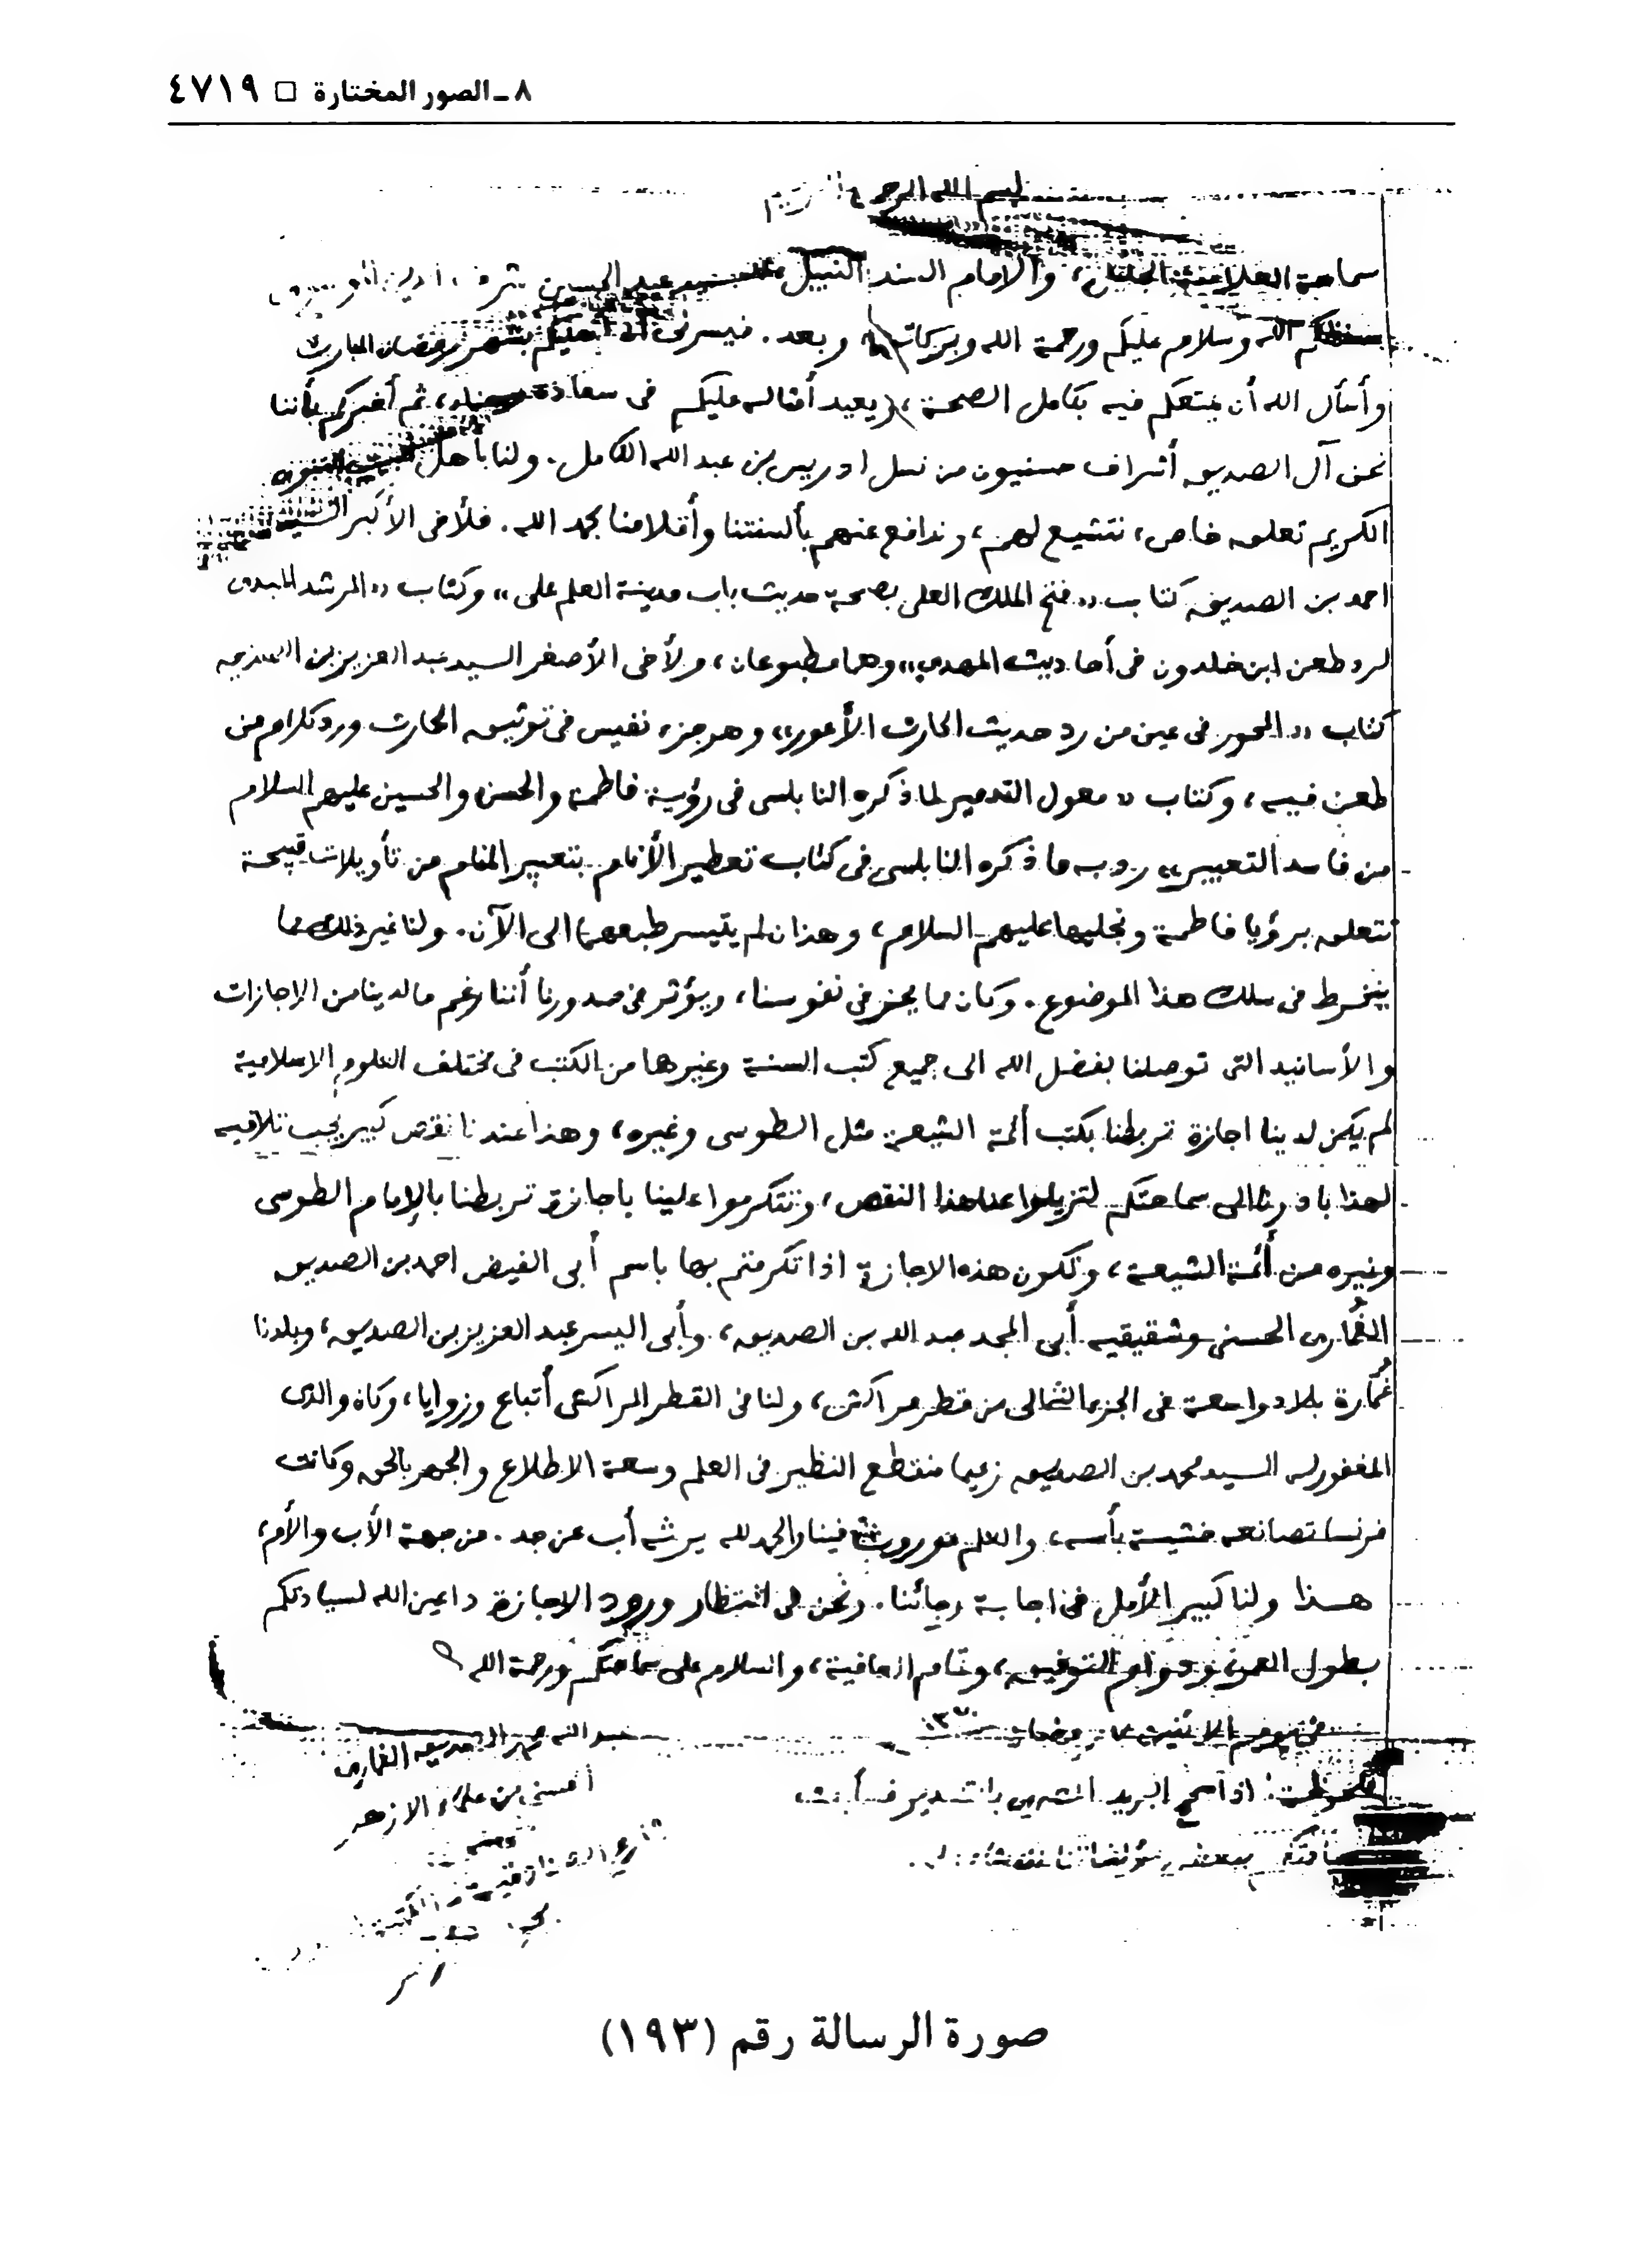 ٨ ـ الصور المختارة □ ٤٧١٩
بسم الله الرحمن الرحيم
سماحة العلامة الجليل، والامام السند النبيل، السيد عبد الحسين شرف الدين الموسوى
حفظكم الله وسلام عليكم ورحمة الله وبركاته وبعد. فيسرنى أن أهنيكم بشهر رمضان المبارك
وأسأل الله أن يمتعكم فيه بكامل الصحة، ويعيد أمثاله عليكم فى سعادة وهناء، ثم أخبركم بأننا
نحن آل الصديق أشراف حسنيون من نسل ادريس بن عبد الله الكامل. ولنا بأهل البيت النبوى
الكريم تعلق خاص، نتشيع لهم، وندافع عنهم بألسنتنا وأقلامنا بحمد الله. فلأخى الأكبر السيد
احمد بن الصديق كتاب «فتح الملك العلى بصحة حديث باب مدينة العلم على» وكتاب «المرشد المبدى
لرد طعن ابن خلدون فى أحاديث المهدى» وهما مطبوعان، ولأخى الأصغر السيد عبد العزيز بن الصديق
كتاب «المحور فى عين من رد حديث الحارث الأعور» وهو جزء نفيس فى توثيق الحارث ورد كلام من
طعن فيه، وكتاب «معول التدمير لما ذكره النابلسى فى رؤية فاطمة والحسن والحسين عليهم السلام
من فاسد التعبير» رد به ما ذكره النابلسى فى كتاب تعطير الأنام بتعبير المنام من تأويلات قبيحة
تتعلق برؤيا فاطمة ونجليها عليهم السلام، وهذان لم يتيسر طبعهما الى الآن. ولنا غير ذلك مما
ينخرط فى سلك هذا الموضوع. وكان مما يحز فى نفوسنا، ويؤثر فى صدورنا أننا رغم ما لدينا من الإجازات
والأسانيد التى توصلنا بفضل الله الى جميع كتب السنة وغيرها من الكتب فى مختلف العلوم الإسلامية
لم يكن لدينا اجازة تربطنا بكتب أئمة الشيعة مثل الطوسى وغيره، وهذا عندنا نقص كبير يجب تلافيه
لهذا بادرنا الى سماحتكم لتزيلوا عنا هذا النقص، وتتكرموا علينا باجازة تربطنا بالإمام الطوسى
وغيره من أئمة الشيعة، وتكون هذه الاجازة اذا تكرمتم بها باسم أبى الفيض احمد بن الصديق
الغُمارى الحسنى وشقيقيه أبى المجد عبد الله بن الصديق، وأبى اليسر عبد العزيز بن الصديق، وبلدنا
غُمارة بلاد واسعة فى الجزء الشمالى من قطر مراكش، ولنا فى القطر المراكشى أتباع وزوايا، وكان والدى
المغفور له السيد محمد بن الصديق زعيما منقطع النظير فى العلم وسعة الاطلاع والجهر بالحق وكانت
فرنسا تصانعه خشية بأسه، والعلم موروث فينا والحمد لله يرثه أب عن جد. من جهة الأب والأم،
هذا ولنا كبير الأمل فى اجابة رجائنا. ونحن فى انتظار ورود الاجازة داعين الله لسيادتكم
بطول العمر، ودوام التوفيق، وتمام العافية، والسلام على سماحتكم ورحمة الله
فى يوم الاثنين رمضان ١٣٧٠
عبد الله محمد الصديق الغمارى
الحسنى من علماء الازهر
ملحوظة: اذا سمح البريد
بعض مؤلفاتنا
صورة الرسالة رقم (١٩٣)